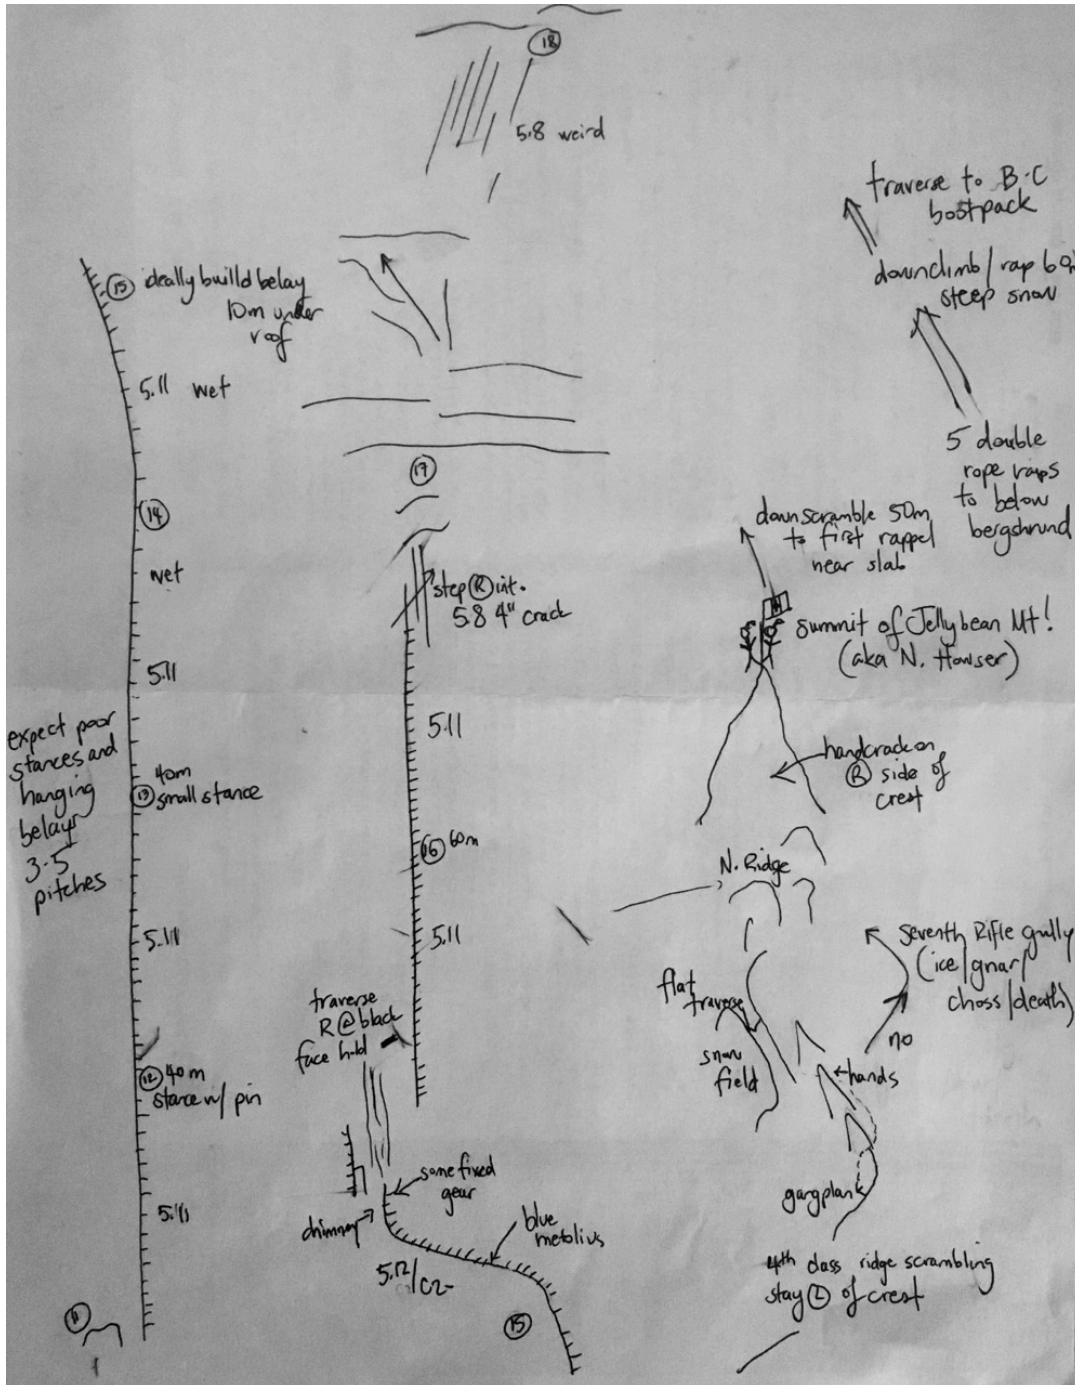 18
5.8 weird
15 ideally build belay
10m under
roof
5.11 wet
14
wet
5.11
expect poor
stances and
hanging
belays
3-5
pitches
40m
13 small stance
5.11
12 40m
stance w/ pin
5.11
11
17
step R into
5.8 4" crack
5.11
16 60m
5.11
traverse
R @ black
face hold
some fixed
gear
chimney
blue
metolius
5.12/C2-
15
traverse to B-C
bootpack
downclimb/rap 60m
steep snow
5 double
rope raps
to below
bergshrund
downscramble 50m
to first rappel
near slab
summit of Jellybean Mt!
(aka N. Howser)
handcrack on
R side of
crest
N. Ridge
Seventh Rifle gully
(ice/gnar/
choss/death)
no
flat
traverse
snow
field
hands
gangplank
4th class ridge scrambling
stay L of crest